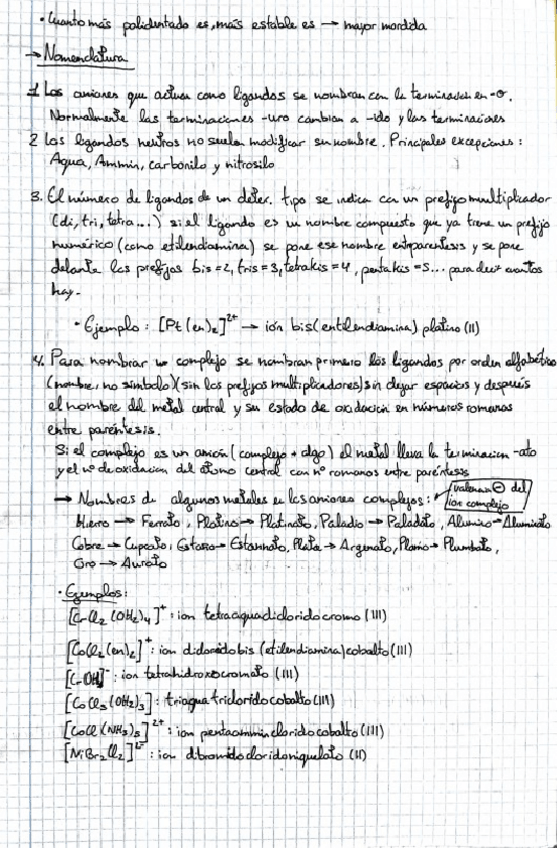 · Cuanto más polidentado es, más estable es → mayor mordida
→ Nomenclatura
1 Los aniones que actuan como ligandos se nombran con la terminación en -o.
Normalmente las terminaciones -uro cambian a -ido y las terminaciones
2 Los ligandos neutros no suelen modificar su nombre. Principales excepciones:
Aqua, Ammin, carbonilo y nitrosilo
3. El número de ligandos de un deter. tipo se indica con un prefijo multiplicador
(di, tri, tetra...) si el ligando es un nombre compuesto que ya tiene un prefijo
numérico (como etilendiamina) se pone ese nombre entre parentesis y se pone
delante los prefijos bis=2, tris=3, tetrakis=4, pentakis=5... para decir cuantos
hay.
· Ejemplo: [Pt(en)₂]²⁺ → ión bis(entilendiamina) platino (II)
4. Para nombrar un complejo se nombran primero los ligandos por orden alfabético
(nombre, no símbolo)(sin los prefijos multiplicadores) sin dejar espacios y después
el nombre del metal central y su estado de oxidación en números romanos
entre paréntesis.
Si el complejo es un anión (complejo + algo) el metal lleva la terminacion -ato
y el nº de oxidacion del átomo central con nº romanos entre paréntesis
→ Nombres de algunos metales en los aniones complejos: valencia ⊖ del
ion complejo
Hierro → Ferrato, Platino → Platinato, Paladio → Paladato, Aluminio → Aluminato
Cobre → Cuprato, Estaño → Estannato, Plata → Argenato, Plomo → Plumbato,
Oro → Aurato
· Ejemplos:
[CrCl₂(OH₂)₄]⁺: ion tetraaquadicloridocromo (III)
[CoCl₂(en)₂]⁺: ion dicloridobis (etilendiamina)cobalto (III)
: ion tetrahidroxocromato (III)
[CoCl₃(OH₂)₃]: triaquatricloridocobalto (III)
[CoCl(NH₃)₅]²⁺: ion pentaammincloridocobalto (III)
[NiBr₂Cl₂]: ion dibromidodicloridoniquelato (II)